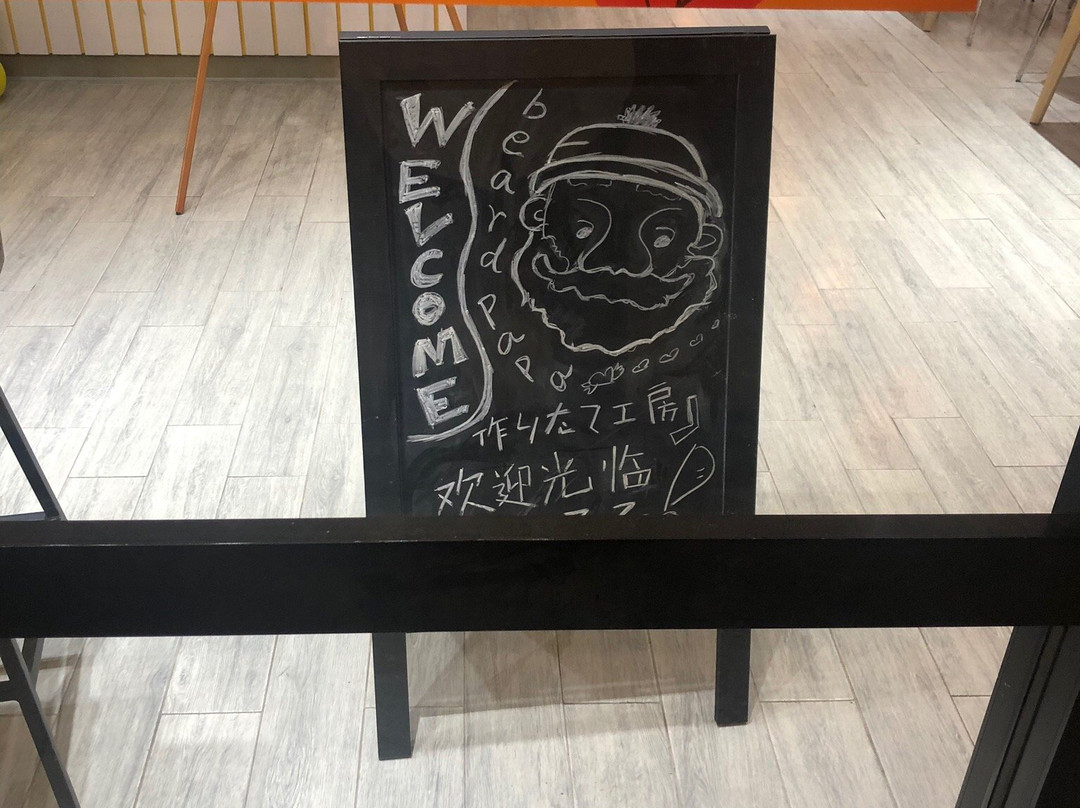 WELCOME
beard papa
作りたて工房
欢迎光临